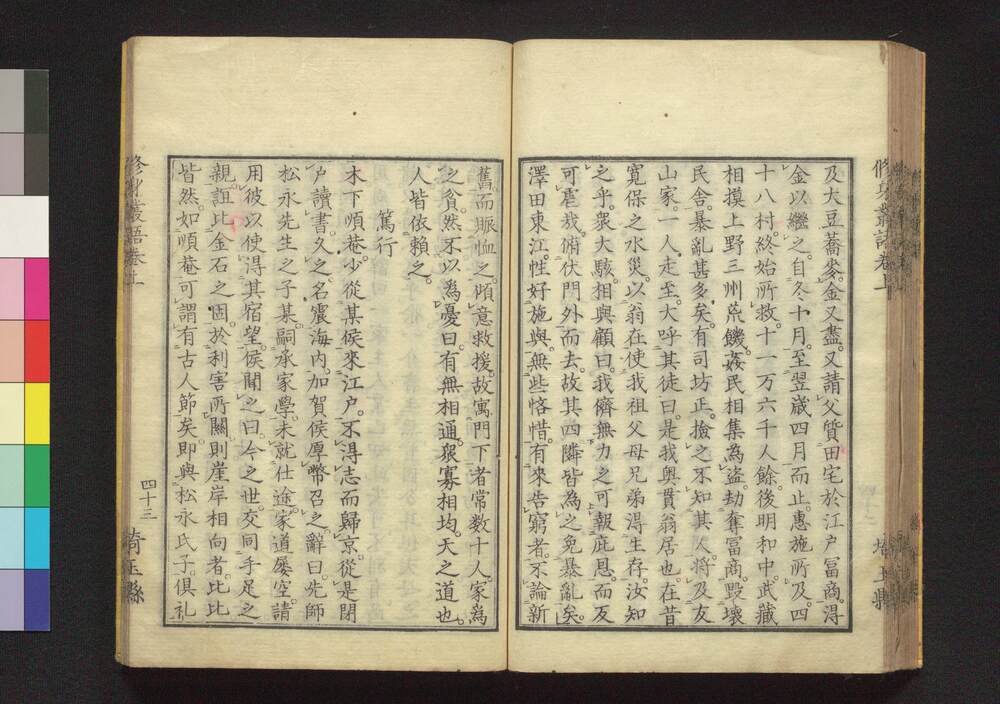 及大豆蕎麥。金又盡。又請父質田宅於江戸冨商。淂
金以繼之。自冬十月。至翌歳四月而止。惠施所及。四
十八村。終始所救。十一万六千人餘。後明和中武藏
相摸上野三州荒饑。姦民相集為盗。劫奪冨商。毀壊
民舎。暴亂甚多矣。有司坊正。撿之不知其人。將及友
山家。一人走至。大呼其徒曰。是我奥貫翁居也。在昔
寛保之水災。以翁在使我祖父母兄弟淂生存。汝知
之乎。衆大駭。相與顧曰。我儕無力之可報庇恩。而反
可虐哉。俯伏門外而去。故其四隣皆為之免暴亂矣。
澤田東江。性好施與。無些悋惜。有來告窮者。不論新
舊而賑恤之。傾意救援。故寓門下者常数十人。家為
之貧。然不以為憂曰。有無相通。衆寡相均。天之道也。
人皆依賴之。
篤行
木下順菴。少從某侯來江戸。不得志而歸京。從是閉
戸讀書。久之。名震海内。加賀侯厚幣召之。辭曰。先師
松永先生之子某。嗣承家學。未就仕途。家道屡空。請
用彼以使得其宿望。侯聞之曰。今之世。交同手足之
親。誼比金石之固。於利害所關。則崖岸相向者。比比
皆然。如順菴可謂有古人節矣。即與松永氏子俱礼
修身叢語卷上
四十三
埼玉縣